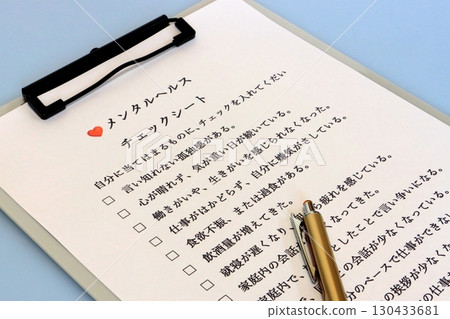 メンタルヘルス
チェックシート
自分に当てはまるものに、チェックを入れてくだい
言い知れない孤独感がある。
心が晴れず、気が重い日が続いている。
働きがいや、生きがいを感じられなくなった。
仕事がはかどらず、自分に嫌気がさしている。
食欲不振、または過食がある。
飲酒量が増えてきた。
就寝が遅くなり 疲れを感じている。
家庭内の会話 ってきた。
家庭内で、 としたことで言い争いになる。
の会話が少なくなっている。
分のペースで仕事ができな
挨拶が少なく
130433681